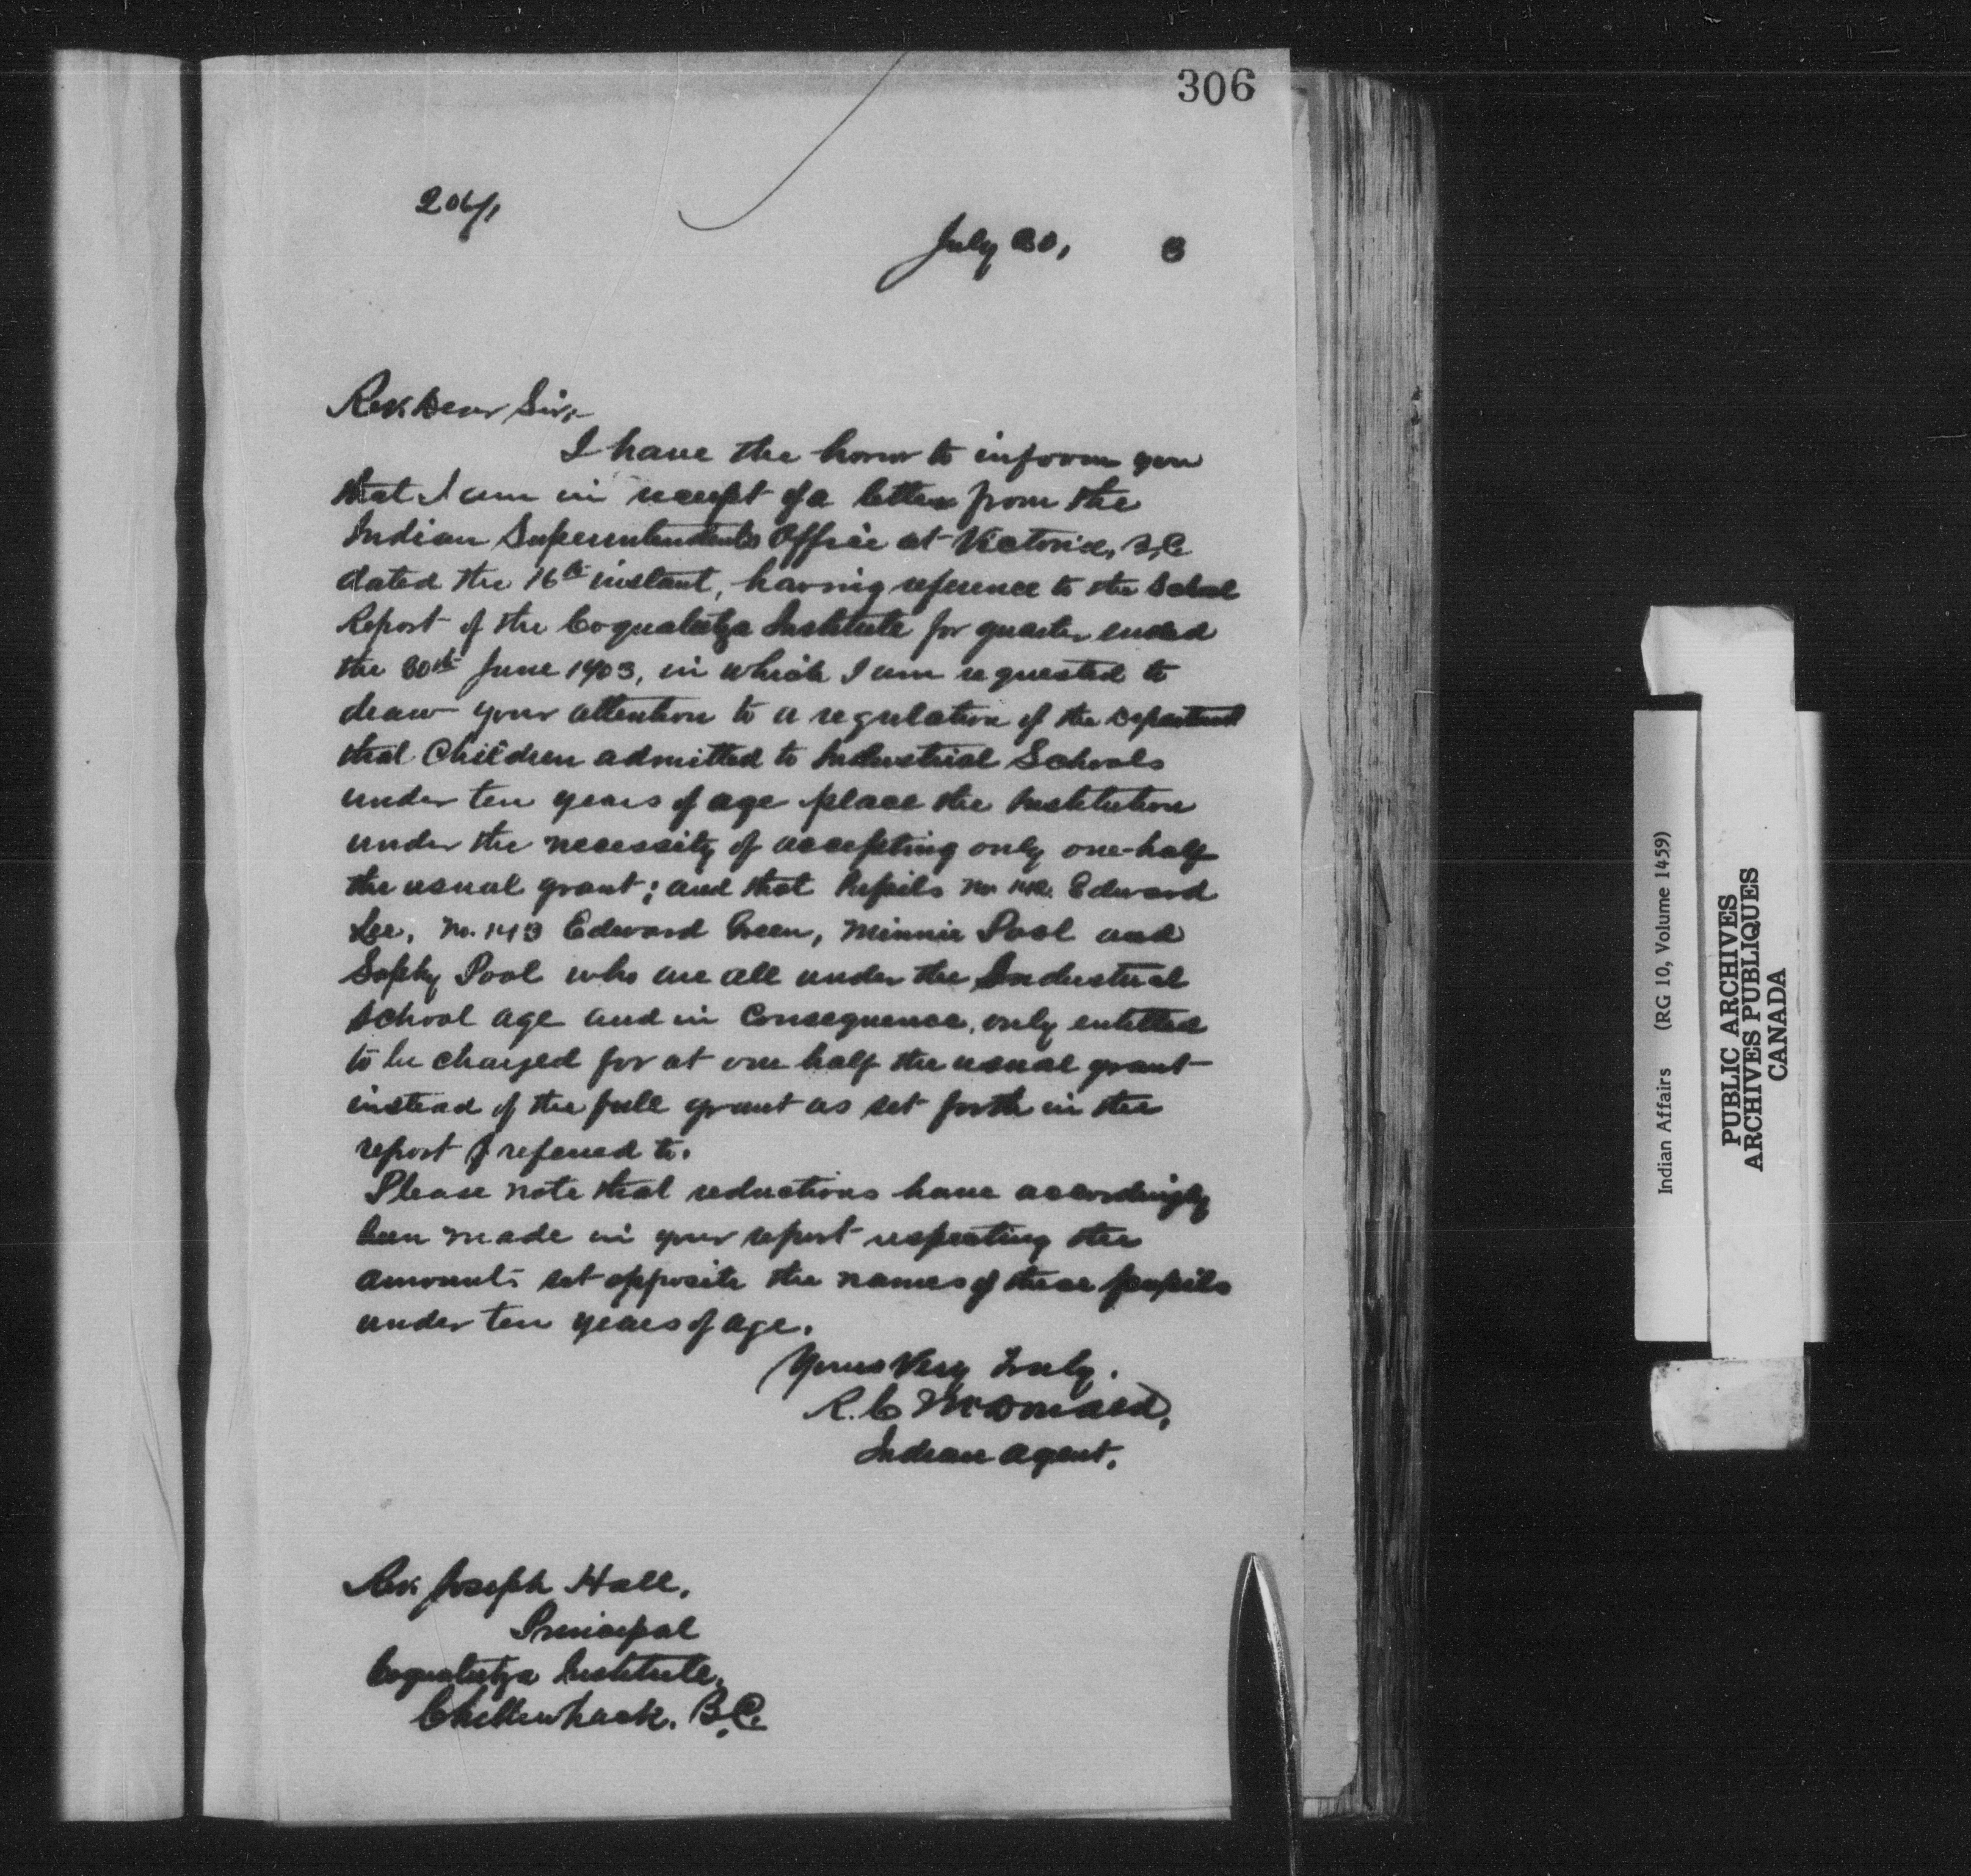 306
206/1
July 30, 3
Rev Dear Sir,-
I have the honor to inform you
that I am in receipt of a letter from the
Indian Superintendents Office at Victoria, B.C.
dated the 16th instant, having reference to the School
Report of the Coqualeetza Institute for quarter ended
the 30th June 1903, in which I am requested to
draw your attention to a regulation of the Department
that Children admitted to Industrial Schools
under ten years of age place the Institution
under the necessity of accepting only one-half
the usual grant; and that Pupils No. 142. Edward
Lee, No. 143 Edward Green, Minnie Pool and
Sophy Pool who are all under the Industrial
School age and in Consequence, only entitled
to be charged for at one half the usual grant
instead of the full grant as set forth in the
report referred to.
Please note that reductions have accordingly
been made in your report respecting the
amounts set opposite the names of these pupils
under ten years of age.
Yours Very Truly.
R. C McDonald,
Indian Agent.
Rev. Joseph Hall,
Principal
Coqualeetza Institute,
Chilliwhack. B.C.
Indian Affairs (RG 10, Volume 1459)
PUBLIC ARCHIVES
ARCHIVES PUBLIQUES
CANADA